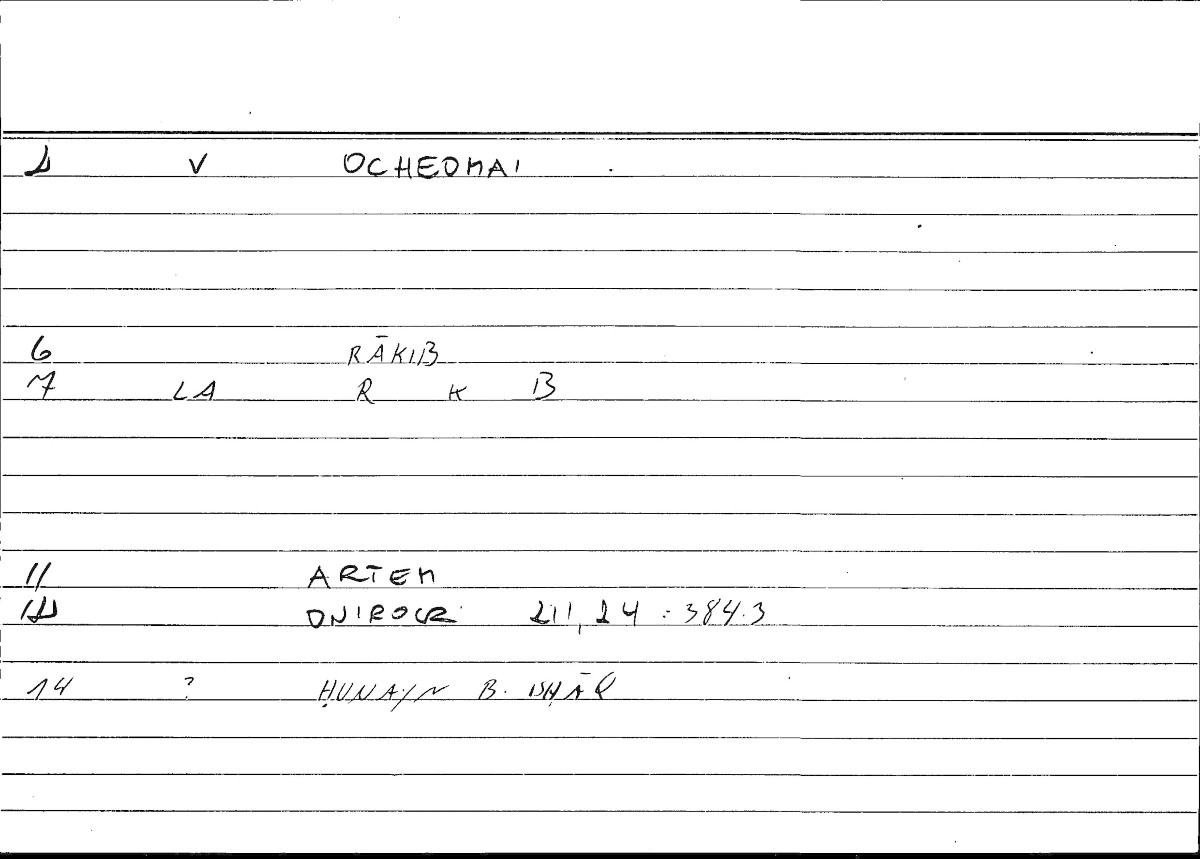 1 V OCHEOMAI
6 RĀKIB
7 LA R K B
11 ARTEM
12 ONIROCR 211,24 : 384.3
14 ? ḤUNAYN B. ISḤĀQ